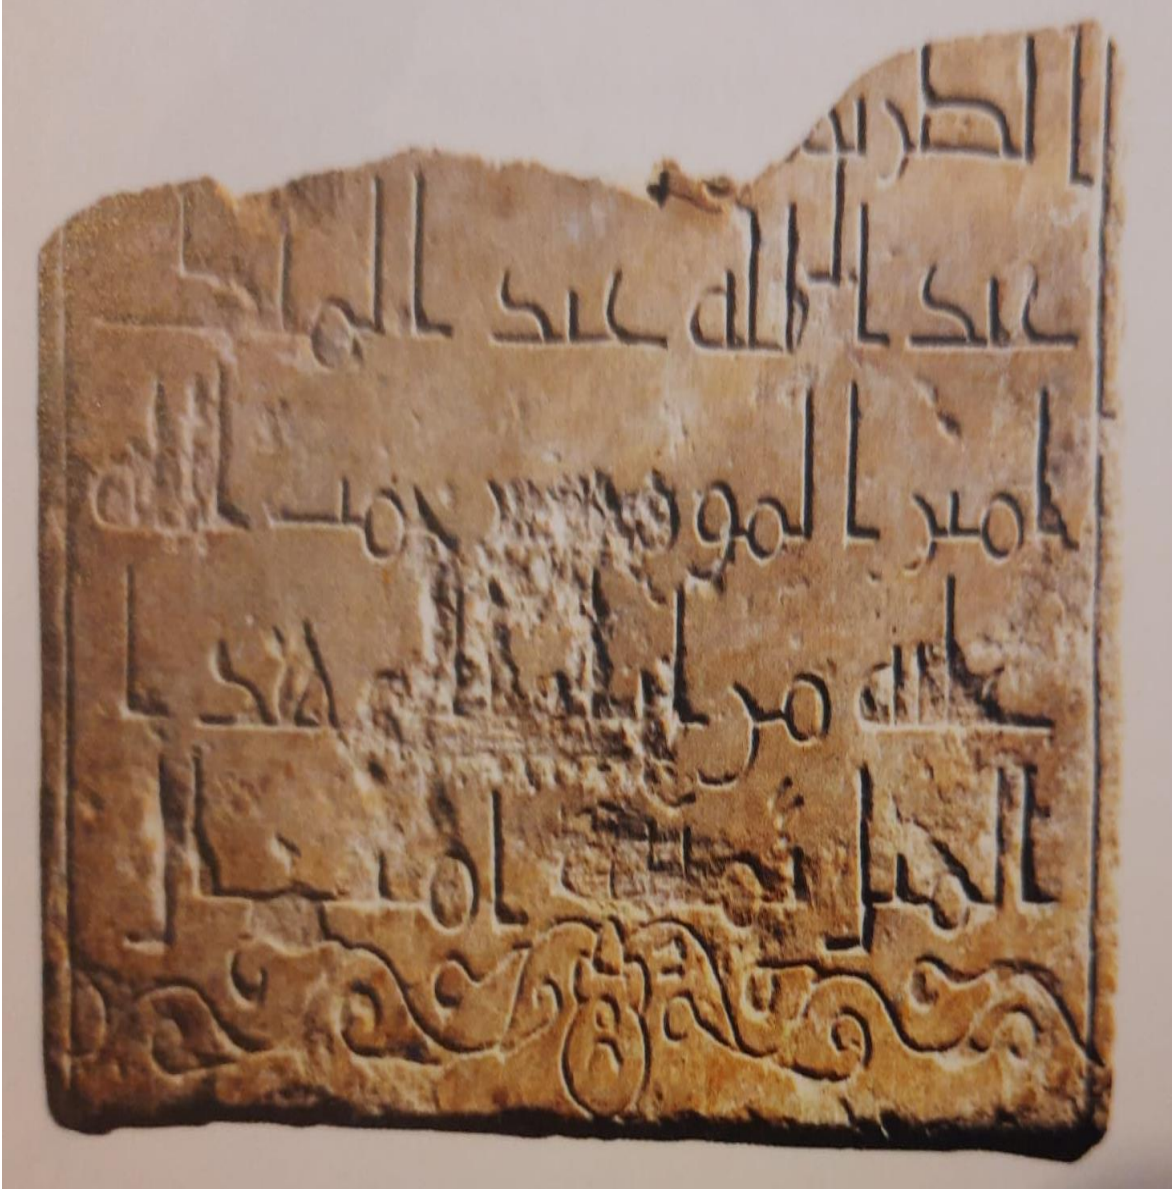 الطريق
عبد الله عبد الملك
امير المومنين رحمت الله
عليه من ايليا الى هذا
الميل ثمنيت اميال